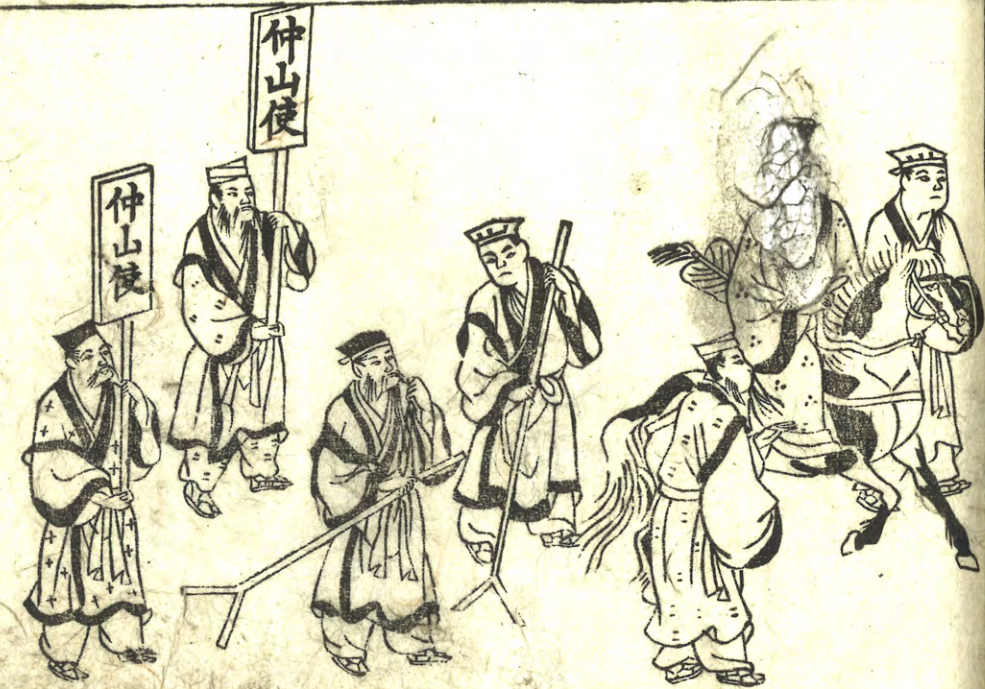 仲山使
仲山使